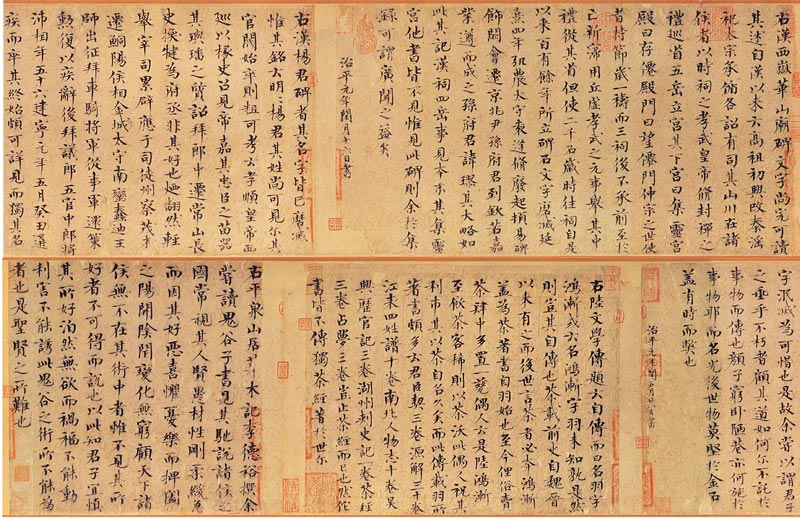 右漢西嶽華山廟碑文字尚完可讀
其述自漢以來云高祖初興改秦淫
祀太宗承循各詔有司其山川在諸
侯者以時祠之孝武皇帝脩封禪之
禮巡省五岳立宮其下宮曰集靈宮
殿曰存僊殿門曰望僊門仲宗之世使
者持節歲一禱而三祠後不承前至於
亡新寖用丘虛孝武之元事舉其中
禮從其省但使二千石歲時往祠自是
以來百有餘年所立碑石文字磨滅延
熹四年弘農太守袁逢脩廢起頓易碑
飾闕會遷京兆尹孫府君到欽若嘉
業遵而成之孫府君諱璆其大略如
此其記漢祠四岳事見本末其集靈
宮他書皆不見惟見此碑則余於集
錄可謂廣聞之益矣
治平元年閏月十六日書
右漢楊君碑者其名字皆已磨滅
惟其銘云明明楊君其姓尚可見尔其
官閥始卒則粗可考云孝順皇帝西
巡以掾史召見帝嘉其忠臣之苗器
其璵璠之質詔拜郎中遷常山長
史換犍為府丞非其好也迺翻然輕
舉宰司累辟應于司徒州察茂才
遷鮦陽侯相金城太守南蠻蠢迪王
師出征拜車騎將軍從事軍還策
勳復以疾辭後拜議郎五官中郎將
沛相年五十六建寧元年五月癸丑遘
疾而卒其終始頗可詳見而獨其名
字泯滅為可惜也是故余嘗以謂君子
之垂乎不朽者顧其道如何尔不託於
事物而傳也顏子窮卧陋巷亦何施於
事物耶而名光後世物莫堅於金石
蓋有時而弊也
治平元年閏五月廿八日書
右陸文學傳題云自傳而曰名羽字
鴻漸或云名鴻漸字羽未知孰是然
則豈其自傳也茶載前史自魏晉
以來有之而後世言茶者必本鴻漸
蓋為茶著書自羽始也至今俚俗賣
茶肆中多置一甆偶人云是陸鴻漸
至飲茶客稀則以茶沃此偶人祝其
利市其以茶自名久矣而此傳載羽所
著書頗多云君臣契三卷源解三十卷
江表四姓譜十卷南北人物志十卷吳
興歷官記三卷湖州刺史記一卷茶經
三卷占夢三卷豈止茶經而已也然佗
書皆不傳獨茶經著於世尔
右平泉山居草木記李德裕撰余
嘗讀鬼谷子書見其馳說諸侯之
國常視其人賢愚材性剛柔緩急
而因其好惡喜懼憂樂而捭闔
之陽開陰闔變化無窮顧天下諸
侯無不在其術中者惟不見其所
好者不可得而說也以此知君子宜慎
其所好泊然無欲而禍福不能動
利害不能誘此鬼谷之術所不能為
者也是聖賢之所難也